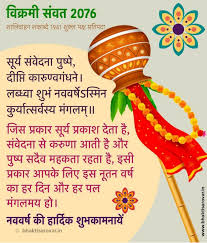 विक्रमी संवत 2076
शालिवाहन शकाब्दे 1941 शुक्ल पक्ष प्रतिपदा
सूर्य संवेदना पुष्पे,
दीप्ति कारुण्यगंधने।
लब्ध्वा शुभं नववर्षेऽस्मिन
कुर्यात्सर्वस्य मंगलम्॥
जिस प्रकार सूर्य प्रकाश देता है,
संवेदना से करुणा आती है और
पुष्प सदैव महकता रहता है, इसी
प्रकार आपके लिए इस नूतन वर्ष
का हर दिन और हर पल
मंगलमय हो।
नववर्ष की हार्दिक शुभकामनायें
© bhaktisarovar.in
www.bhaktisarovar.in